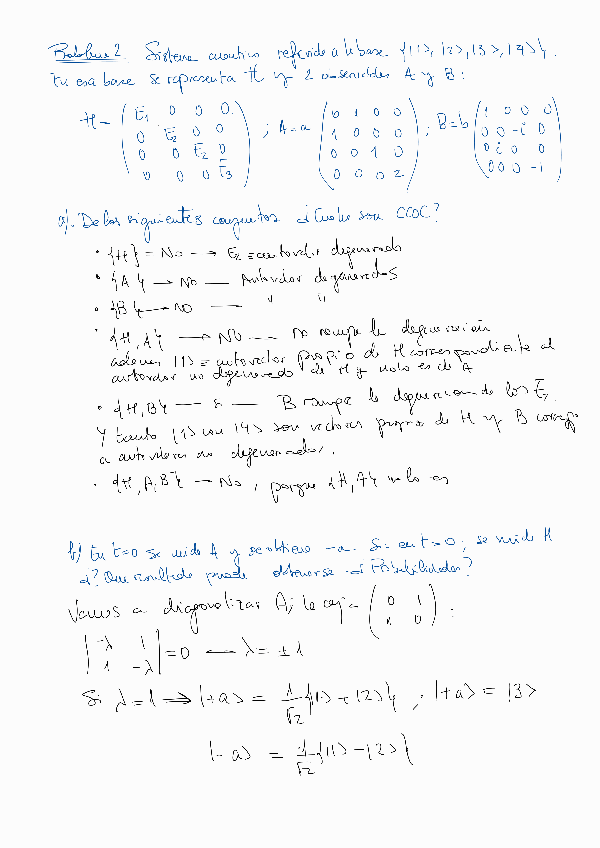 Problema 2. Sistema cuántico referido a la base {|1>, |2>, |3>, |4>}.
En esa base se representa H y 2 observables A y B:
H = ( E1 0 0 0 ; 0 E2 0 0 ; 0 0 E2 0 ; 0 0 0 E3 ) ; A = a ( 0 1 0 0 ; 1 0 0 0 ; 0 0 1 0 ; 0 0 0 2 ) ; B = b ( 1 0 0 0 ; 0 0 -i 0 ; 0 i 0 0 ; 0 0 0 -i )
a) De los siguientes conjuntos ¿Cuales son CCOC?
• {H} - No → E2 = autovalor degenerado
• {A} → No — Autovalor degenerados
• {B} → NO — " "
• {H, A} → NO --- No rompe la degeneración
además |1> = autovector propio de H correspondiente al
autovalor no degenerado de H y no lo es de A
• {H, B} — si — B rompe la degeneracion de los E2
Y tanto |1> con |4> son vectores propios de H y B
a autovalores no degenerados.
• {H, A, B} → No, porque {H, A} no lo es
b) En t=0 se mide A y se obtiene -a. Si en t>0, se mide H
¿? Que resultado puede obtenerse ¿Probabilidades?
Vamos a diagonalizar A; la caja ( 0 1 ; 1 0 ) :
| -λ 1 ; 1 -λ | = 0 — λ = ± 1
Si λ = 1 ⟹ |+a> = 1/√2 {|1> + |2>} , |+a> = |3>
|-a> = 1/√2 {|1> - |2>}